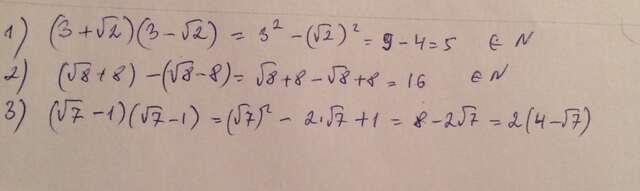 1) (3+√2)(3-√2) = 3² - (√2)² = 9 - 4 = 5 ∈ N
2) (√8+8) - (√8-8) = √8+8-√8+8 = 16 ∈ N
3) (√7-1)(√7-1) = (√7)² - 2·√7 + 1 = 8 - 2√7 = 2(4-√7)